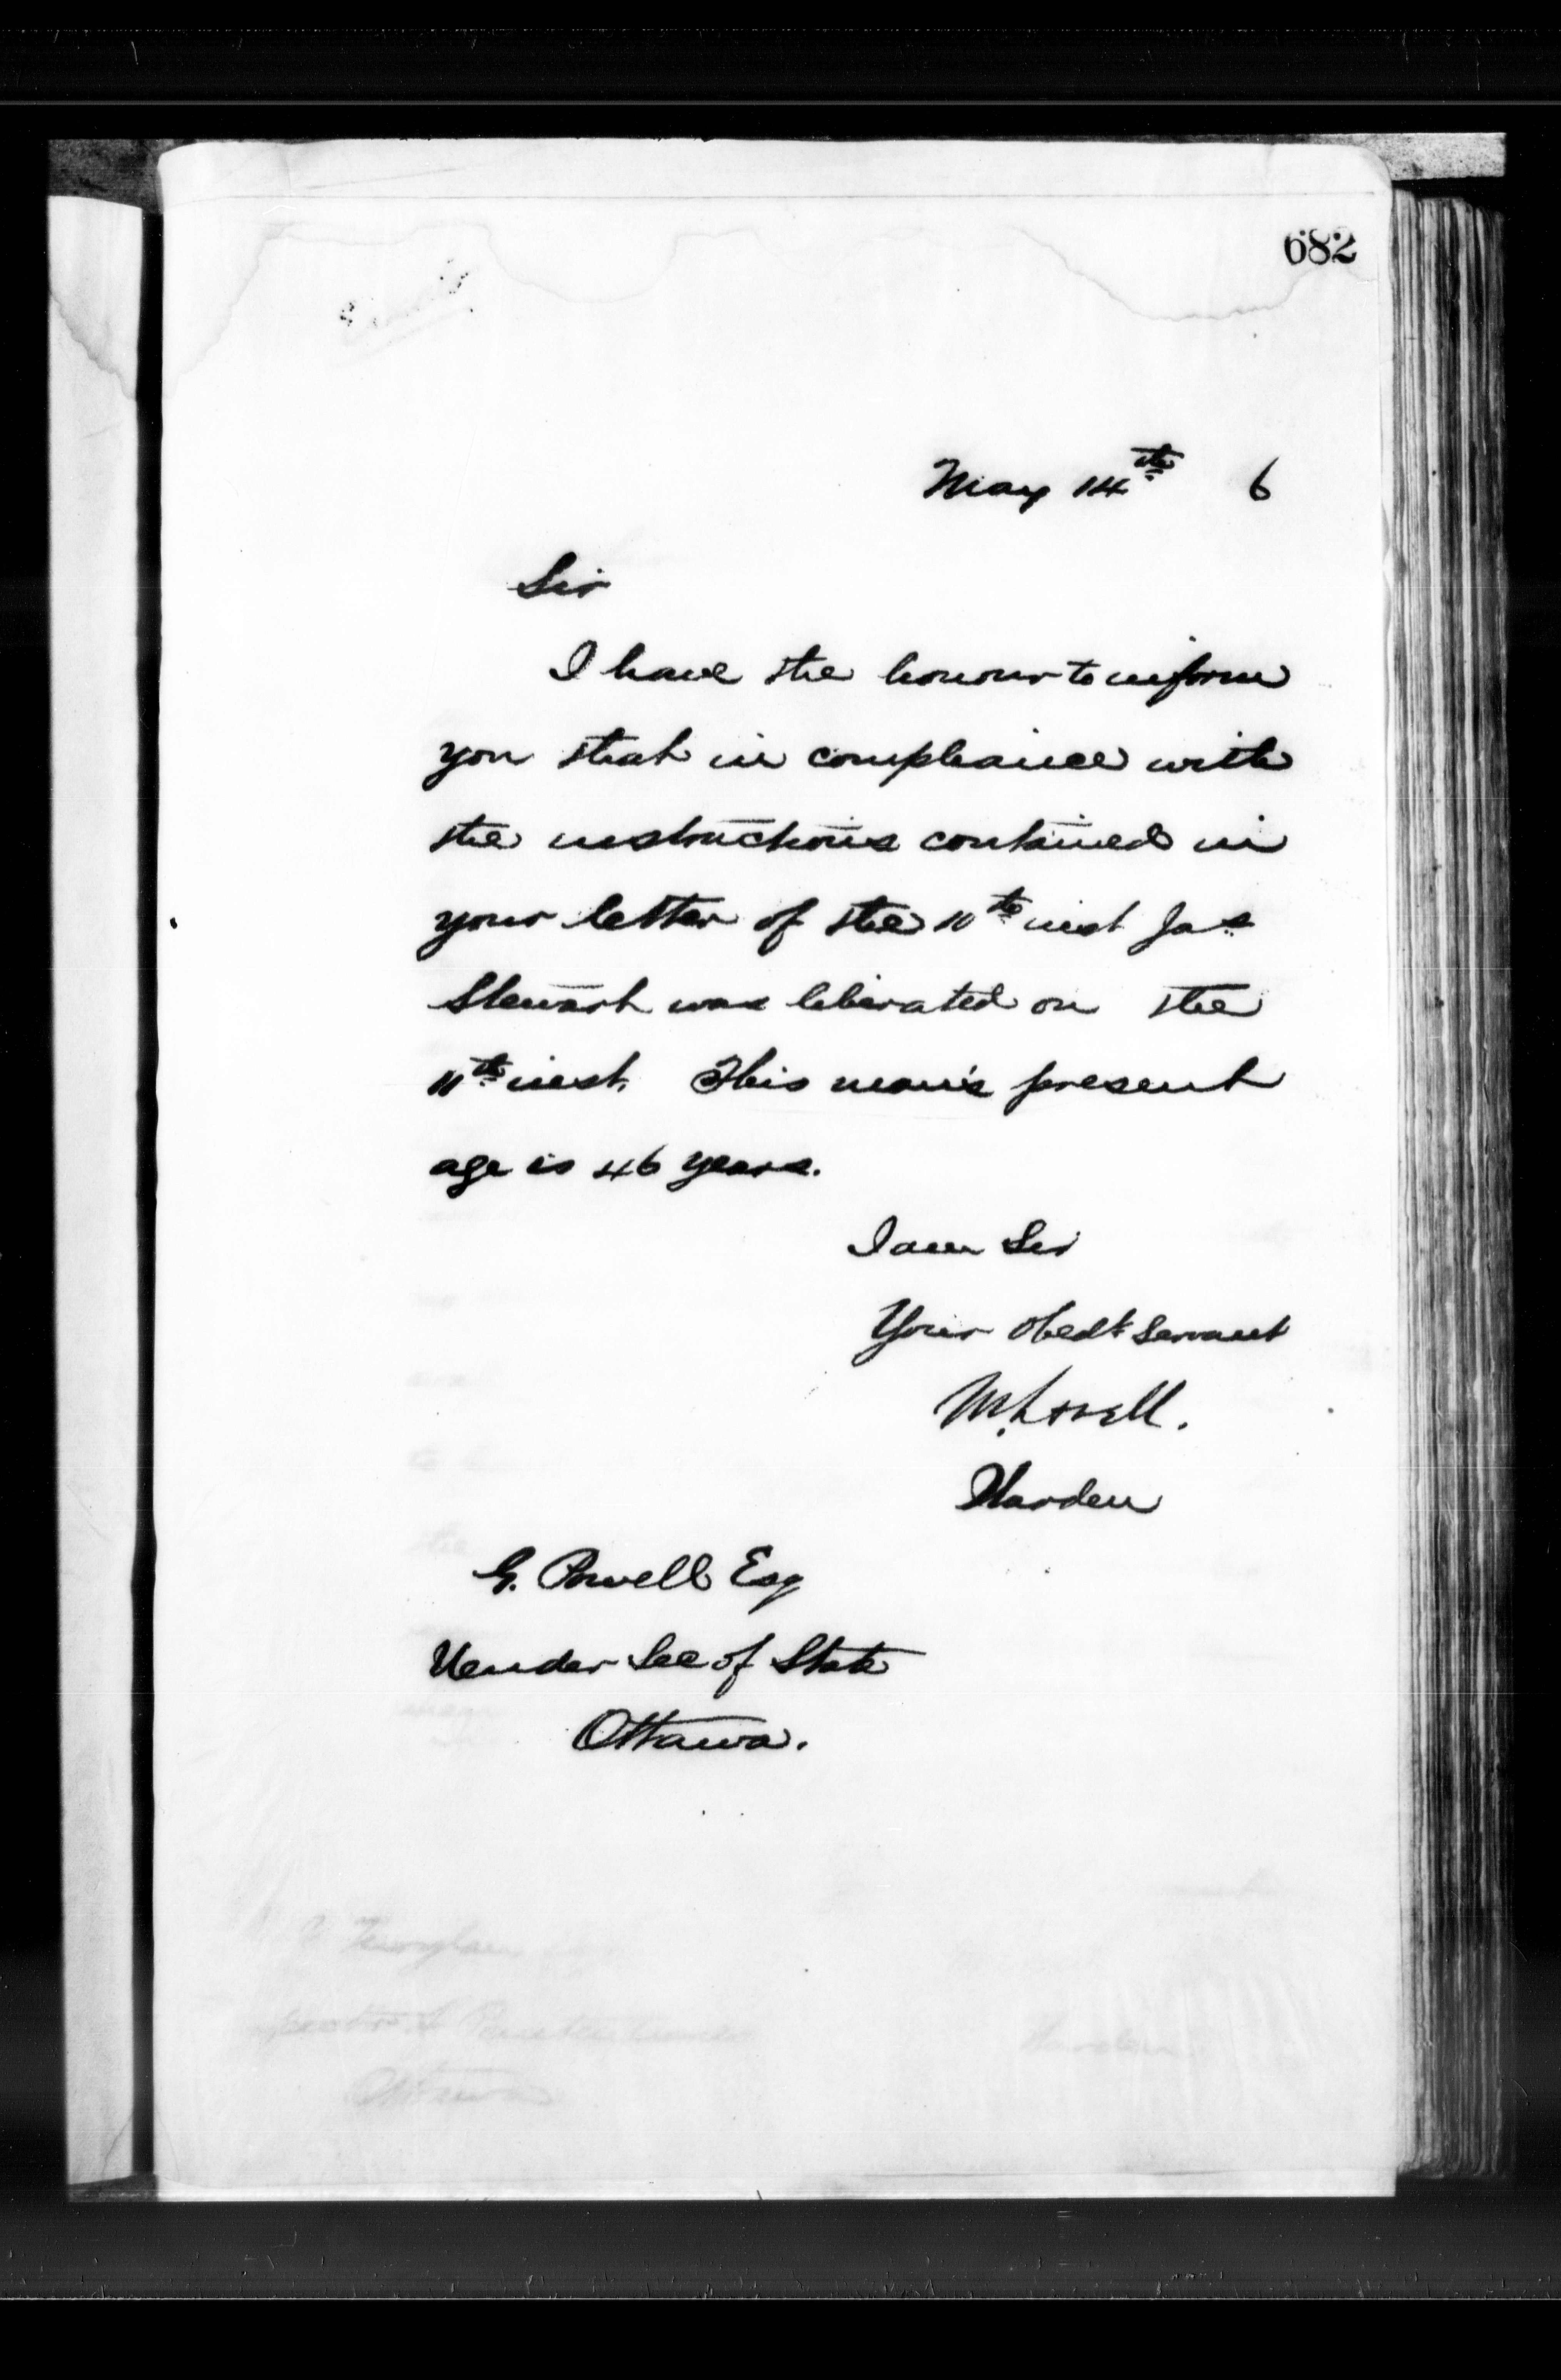 682
May 14th 6
Sir
I have the honour to inform
you that in compliance with
the instructions contained in
your letter of the 10th inst Jas
Stewart was liberated on the
11th inst. This man's present
age is 46 years.
I am Sir
Your obedt servant
M. Lavell.
Warden
G. Powell Esq
Under Sec of State
Ottawa.
Warden
Ottawa